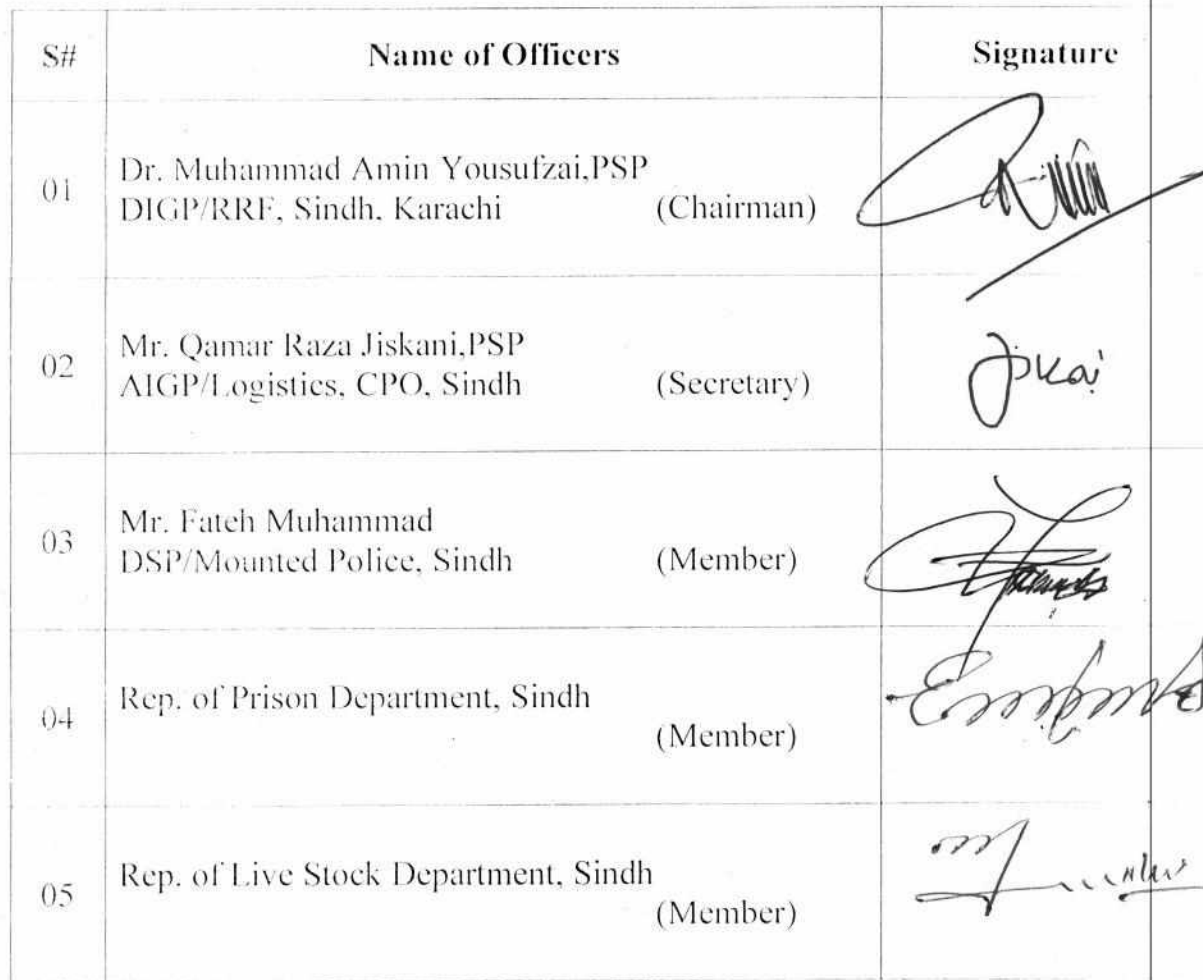 S# Name of Officers Signature
01 Dr. Muhammad Amin Yousufzai,PSP
DIGP/RRF, Sindh, Karachi (Chairman)
02 Mr. Qamar Raza Jiskani,PSP
AIGP/Logistics, CPO, Sindh (Secretary)
03 Mr. Fateh Muhammad
DSP/Mounted Police, Sindh (Member)
04 Rep. of Prison Department, Sindh
(Member)
05 Rep. of Live Stock Department, Sindh
(Member)